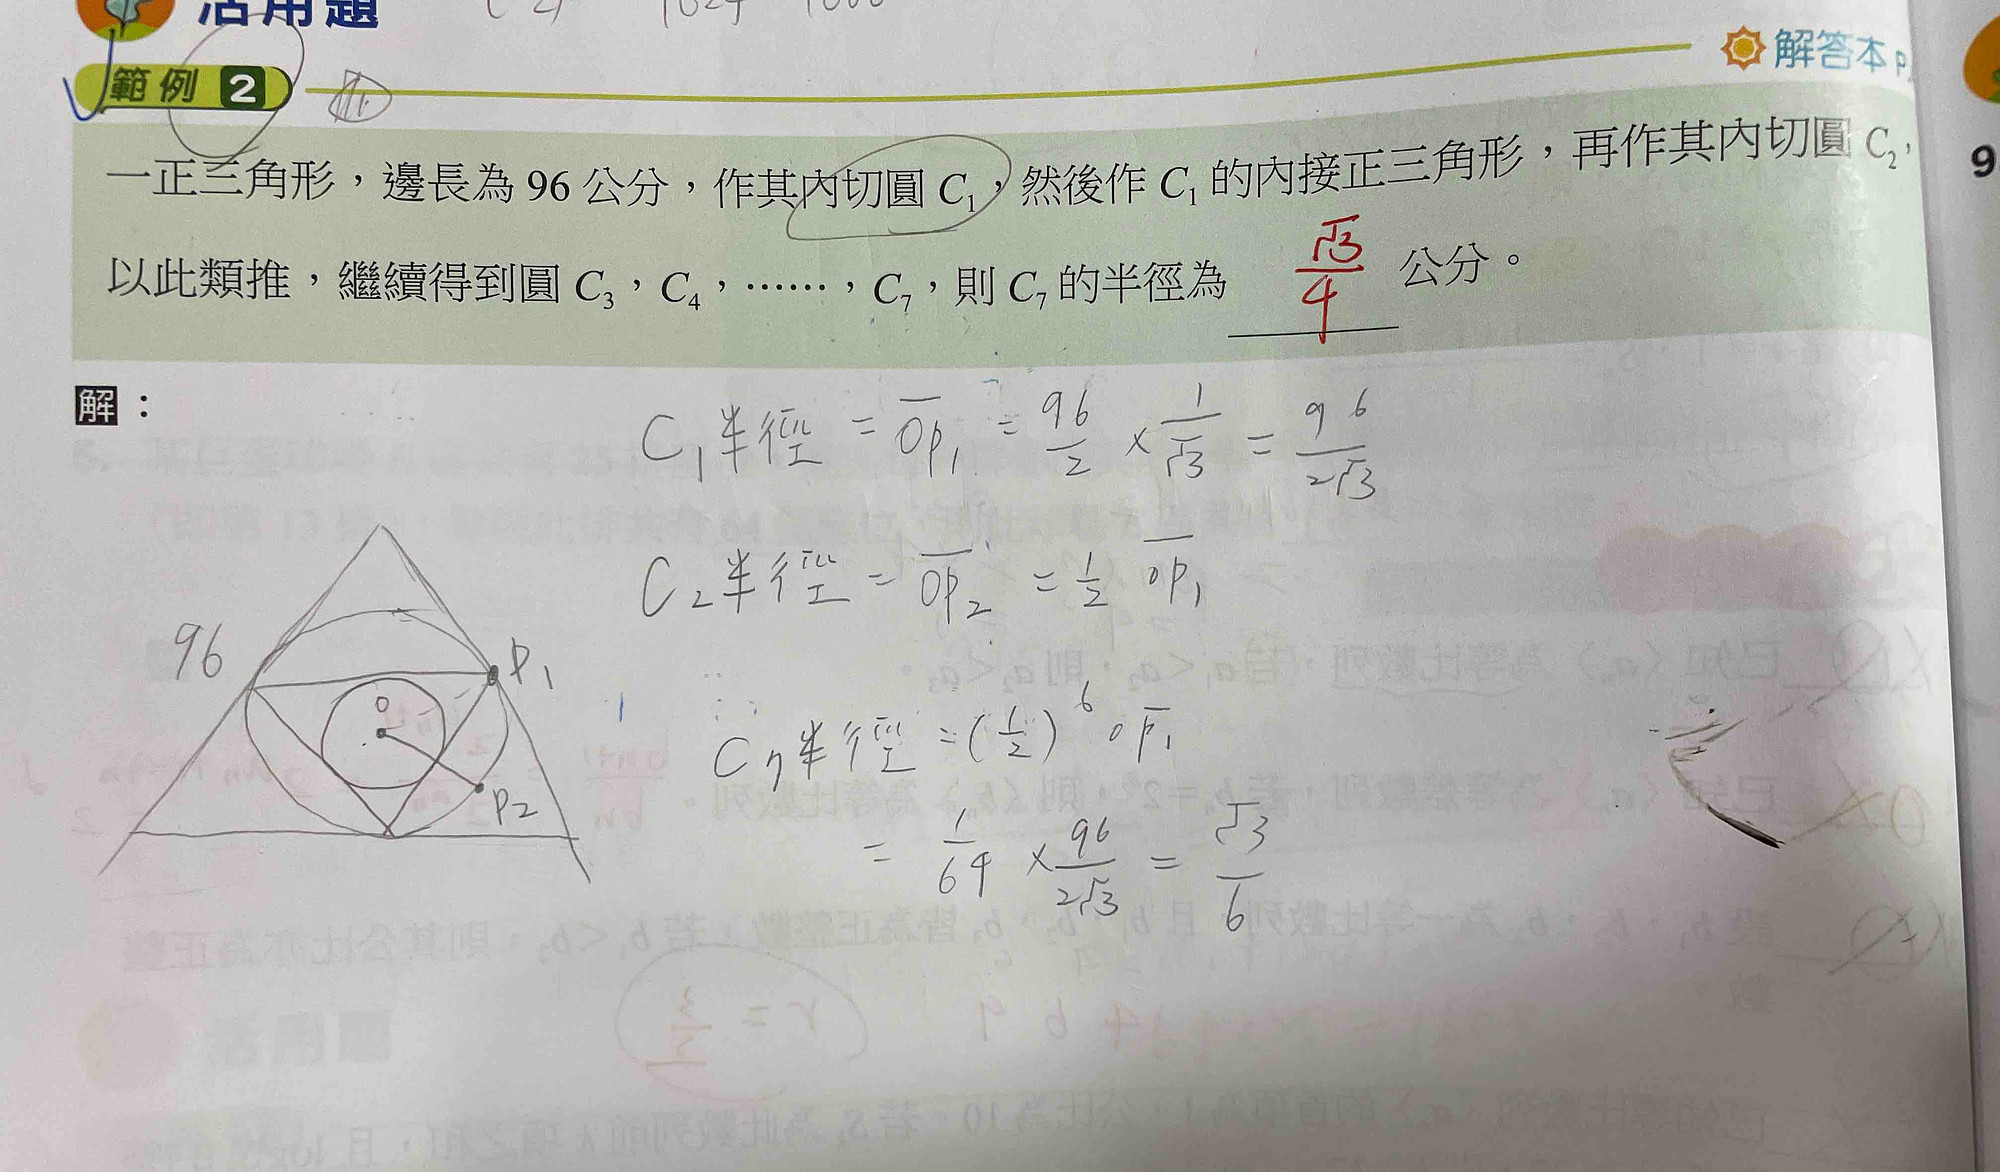 活用題
範例 2
解答本 P.
一正三角形,邊長為 96 公分,作其內切圓 C₁,然後作 C₁ 的內接正三角形,再作其內切圓 C₂,
9
以此類推,繼續得到圓 C₃,C₄,……,C₇,則 C₇ 的半徑為 √3/4 公分。
解:
C₁半徑 = OP₁ = 96/2 × 1/√3 = 96/2√3
C₂半徑 = OP₂ = 1/2 OP₁
C₇半徑 = (1/2)⁶ OP₁
= 1/64 × 96/2√3 = √3/6
96
P₁
O
P₂